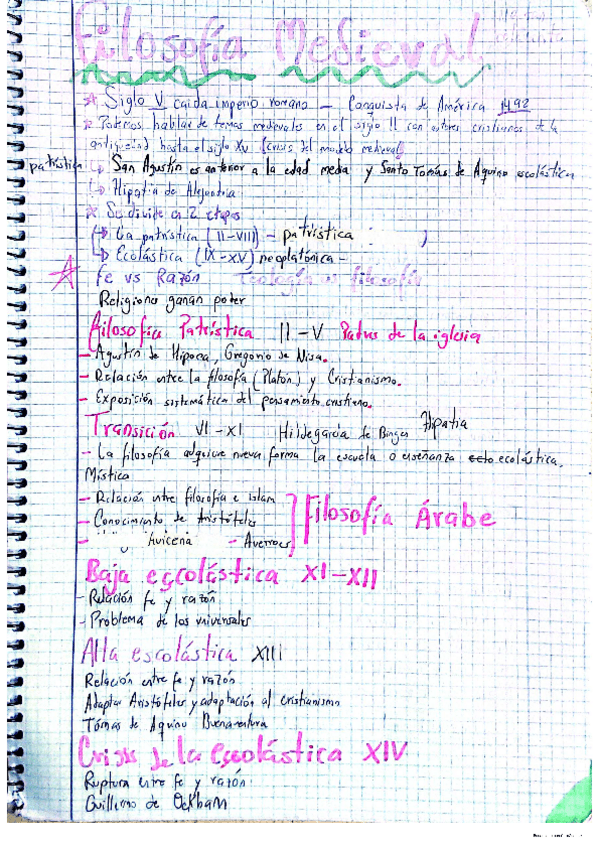 Filosofía Medieval
* Siglo V caida imperio romano – Conquista de América 1492
* Podemos hablar de temas medievales en el siglo II con autores cristianos de la
antiguedad hasta el siglo XV (crisis del modelo medieval)
patrística ↳ San Agustín es anterior a la edad media y Santo Tomás de Aquino escolástica
↳ Hipatia de Alejandria
* Se divide en 2 etapas
↳ La patrística (II-VIII) – patrística )
↳ Ecolástica (IX-XV) neoplatónica –
fe vs Razón Teología vs filosofía
Religiono ganan poter
filosofía Patrística II-V Padres de la iglesia
– Agustín de Hipoca, Gregorio de Nisa.
– Relación entre la filosofía (Platón) y Cristianismo.
– Exposición sistemática del pensamiento cristiano.
Transición VI-XI Hildegarda de Bingen Hipatia
– La filosofía adquiere nueva forma la escuela o enseñanza ecolástica.
Mística
– Relación entre filosofía e islam
– Conocimiento de Aristóteles
– Avicena – Averroes
filosofía Árabe
Baja escolástica XI-XII
– Relación fe y razón
– Problema de los universales
Alta escolástica XIII
Relación entre fe y razón
Adaptar Aristóteles y adaptación al cristianismo
Tomas de Aquino Buenaventura
Crisis de la escolástica XIV
Ruptura entre fe y razón
Guillermo de Ockham